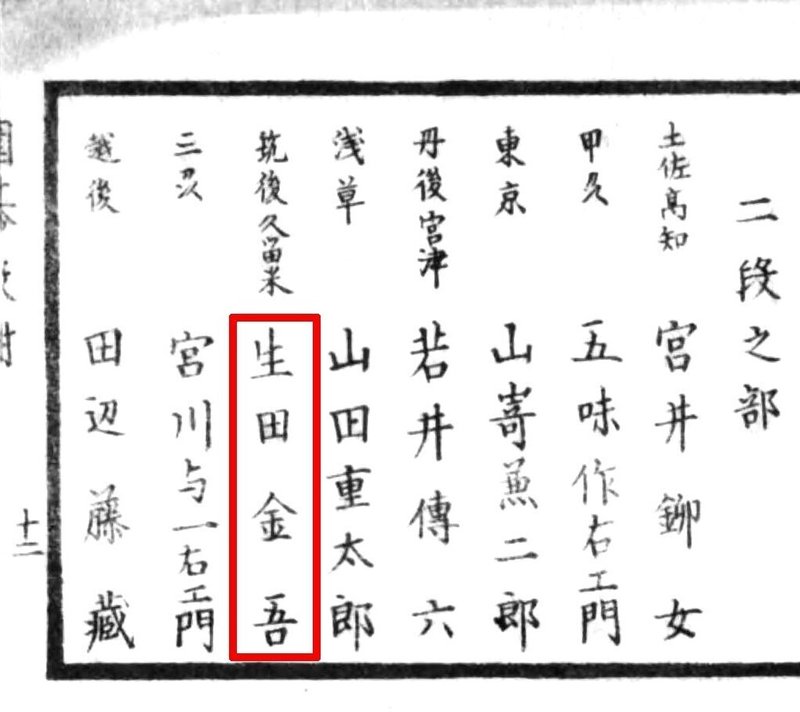 二段之部
土佐高知 宮井鉚女
甲久 五味作右エ門
東京 山嵜兼二郎
丹後宮津 岩井傳六
浅草 山田重太郎
筑後久留米 生田金吾
三久 宮川与一右エ門
越後 田辺藤蔵
十二